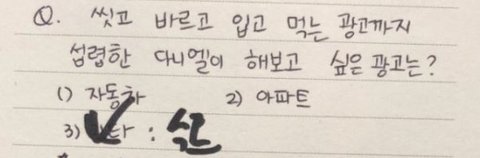 Q. 씻고 바르고 입고 먹는 광고까지
섭렵한 다니엘이 해보고 싶은 광고는?
1) 자동차 2) 아파트
3) : 식